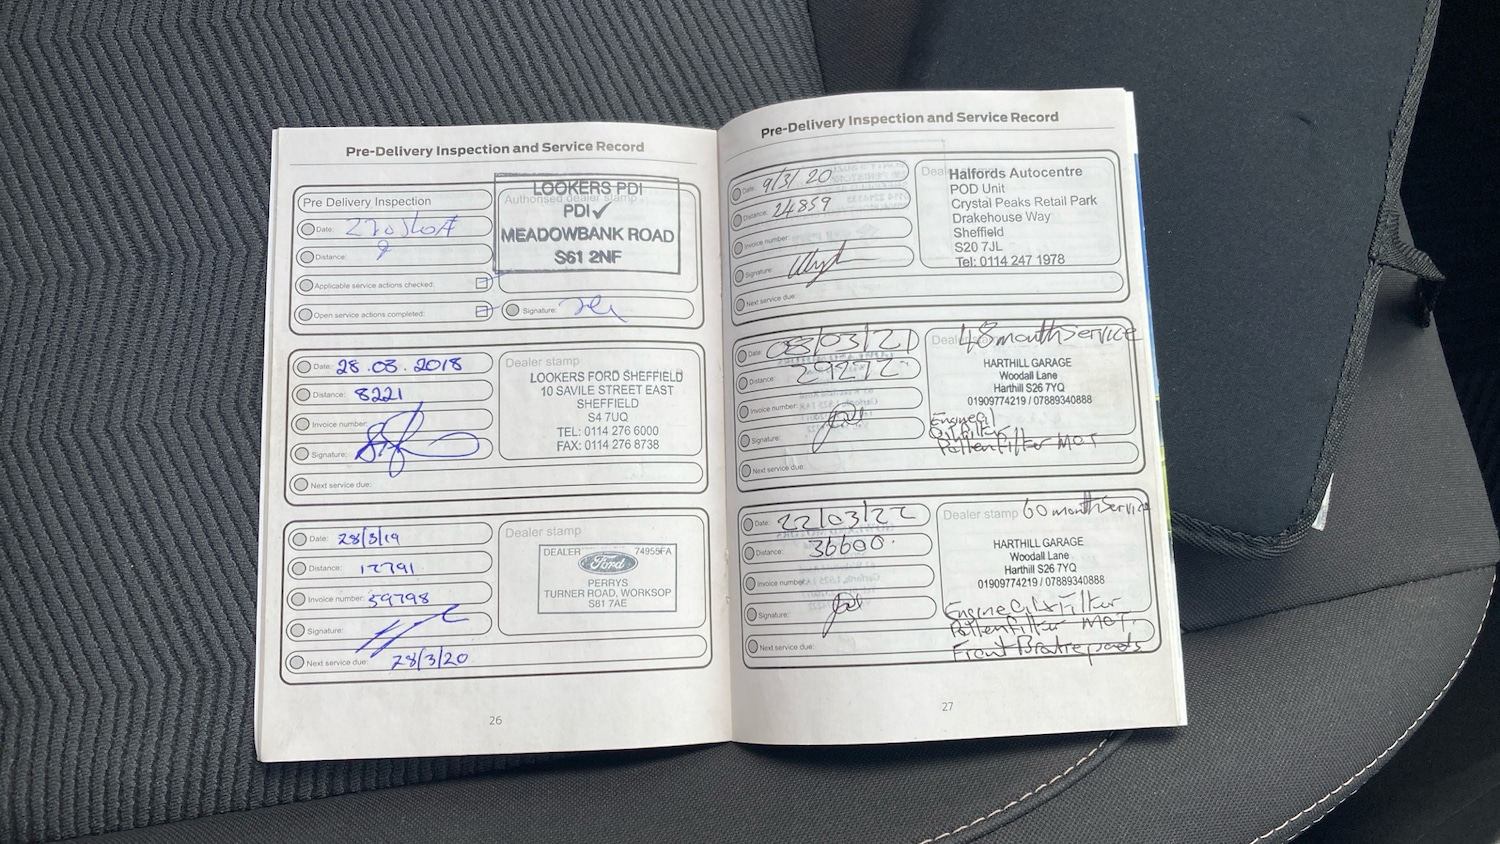 Pre-Delivery Inspection and Service Record
Pre Delivery Inspection
Date:
Distance: 9
Applicable service actions checked:
Open service actions completed:
Authorised dealer stamp
LOOKERS PDI
PDI✓
MEADOWBANK ROAD
S61 2NF
Signature:
Date: 28.03.2018
Distance: 8221
Invoice number:
Signature:
Next service due:
Dealer stamp
LOOKERS FORD SHEFFIELD
10 SAVILE STREET EAST
SHEFFIELD
S4 7UQ
TEL: 0114 276 6000
FAX: 0114 276 8738
Date: 28/3/19
Distance: 17791
Invoice number: 59798
Signature:
Next service due: 28/3/20
Dealer stamp
DEALER 74955FA
Ford
PERRYS
TURNER ROAD, WORKSOP
S81 7AE
26
Pre-Delivery Inspection and Service Record
Date: 9/3/20
Distance: 24859
Invoice number:
Signature:
Next service due:
Deal
Halfords Autocentre
POD Unit
Crystal Peaks Retail Park
Drakehouse Way
Sheffield
S20 7JL
Tel: 0114 247 1978
Date: 03/03/21
Distance: 29272
Invoice number:
Signature:
Next service due:
48 month Service
HARTHILL GARAGE
Woodall Lane
Harthill S26 7YQ
01909774219 / 07889340888
Engine Oil
Oil Filter
Pollen Filter MOT
Date: 22/03/22
Distance: 36600.
Invoice number:
Signature:
Next service due:
Dealer stamp 60 month Service
HARTHILL GARAGE
Woodall Lane
Harthill S26 7YQ
01909774219 / 07889340888
Engine Oil & Filter
Pollen Filter MOT.
Front Brake pads
27